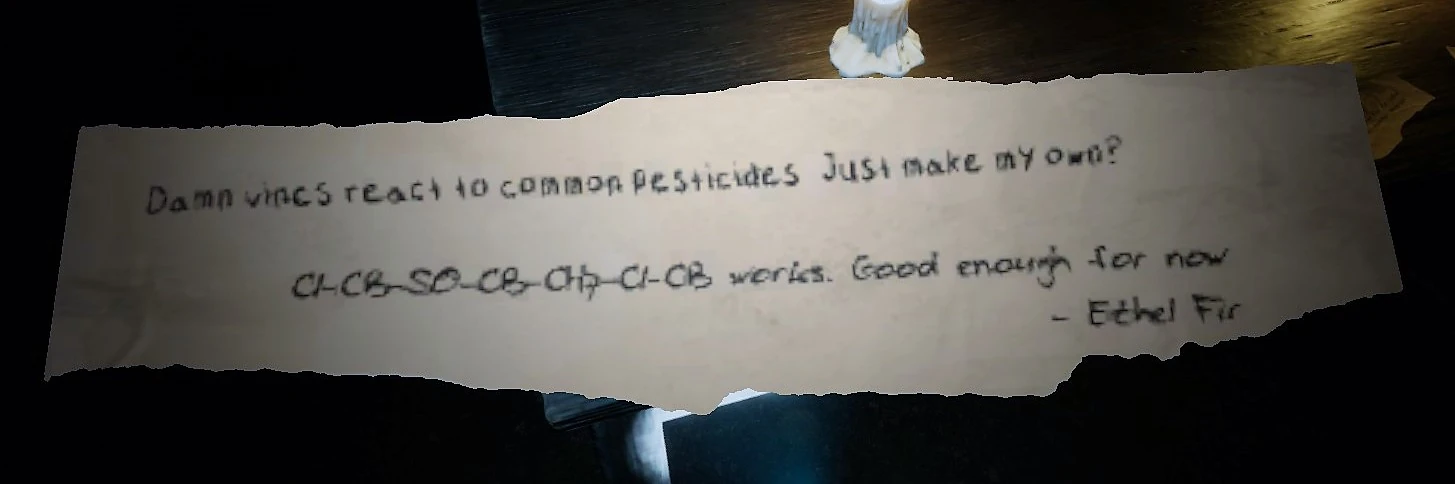 Damn vines react to common pesticides Just make my own?
Cl-CB-SO-CB-CH2-Cl-CB works. Good enough for now
- Ethel Fir